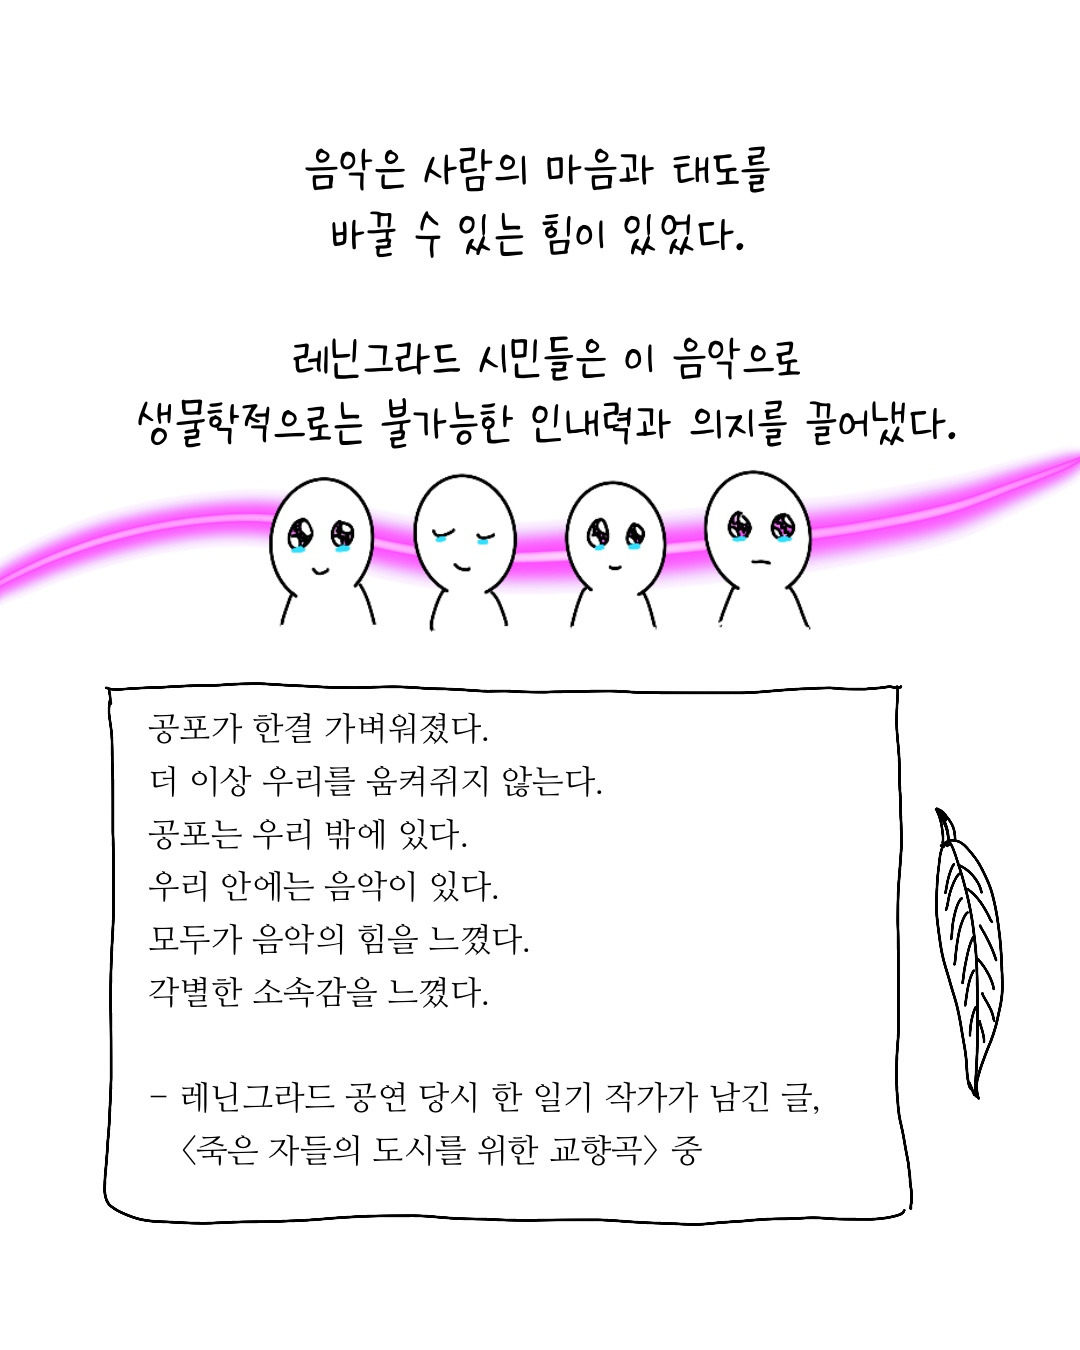 음악은 사람의 마음과 태도를
바꿀 수 있는 힘이 있었다.
레닌그라드 시민들은 이 음악으로
생물학적으로는 불가능한 인내력과 의지를 끌어냈다.
공포가 한결 가벼워졌다.
더 이상 우리를 움켜쥐지 않는다.
공포는 우리 밖에 있다.
우리 안에는 음악이 있다.
모두가 음악의 힘을 느꼈다.
각별한 소속감을 느꼈다.
- 레닌그라드 공연 당시 한 일기 작가가 남긴 글,
〈죽은 자들의 도시를 위한 교향곡〉 중